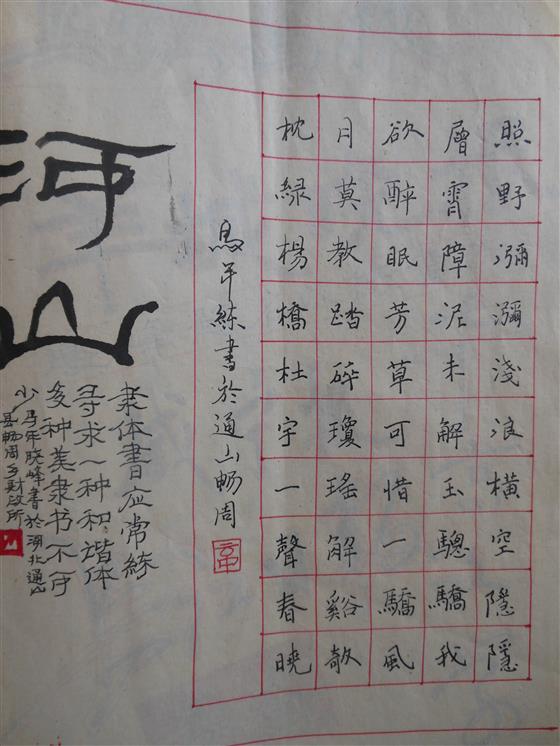 照野瀰瀰淺浪橫空隱隱
層霄障泥未解玉驄驕我
欲醉眠芳草可惜一驕風
月莫教踏碎瓊瑤解谿敧
枕綠楊橋杜宇一聲春曉
馬年練書於通山畅周
河山
隶体書应常练
寻求一种和谐体
多种美隶书不可
少 马年晓峰書於湖北通山
县畅周乡财政所